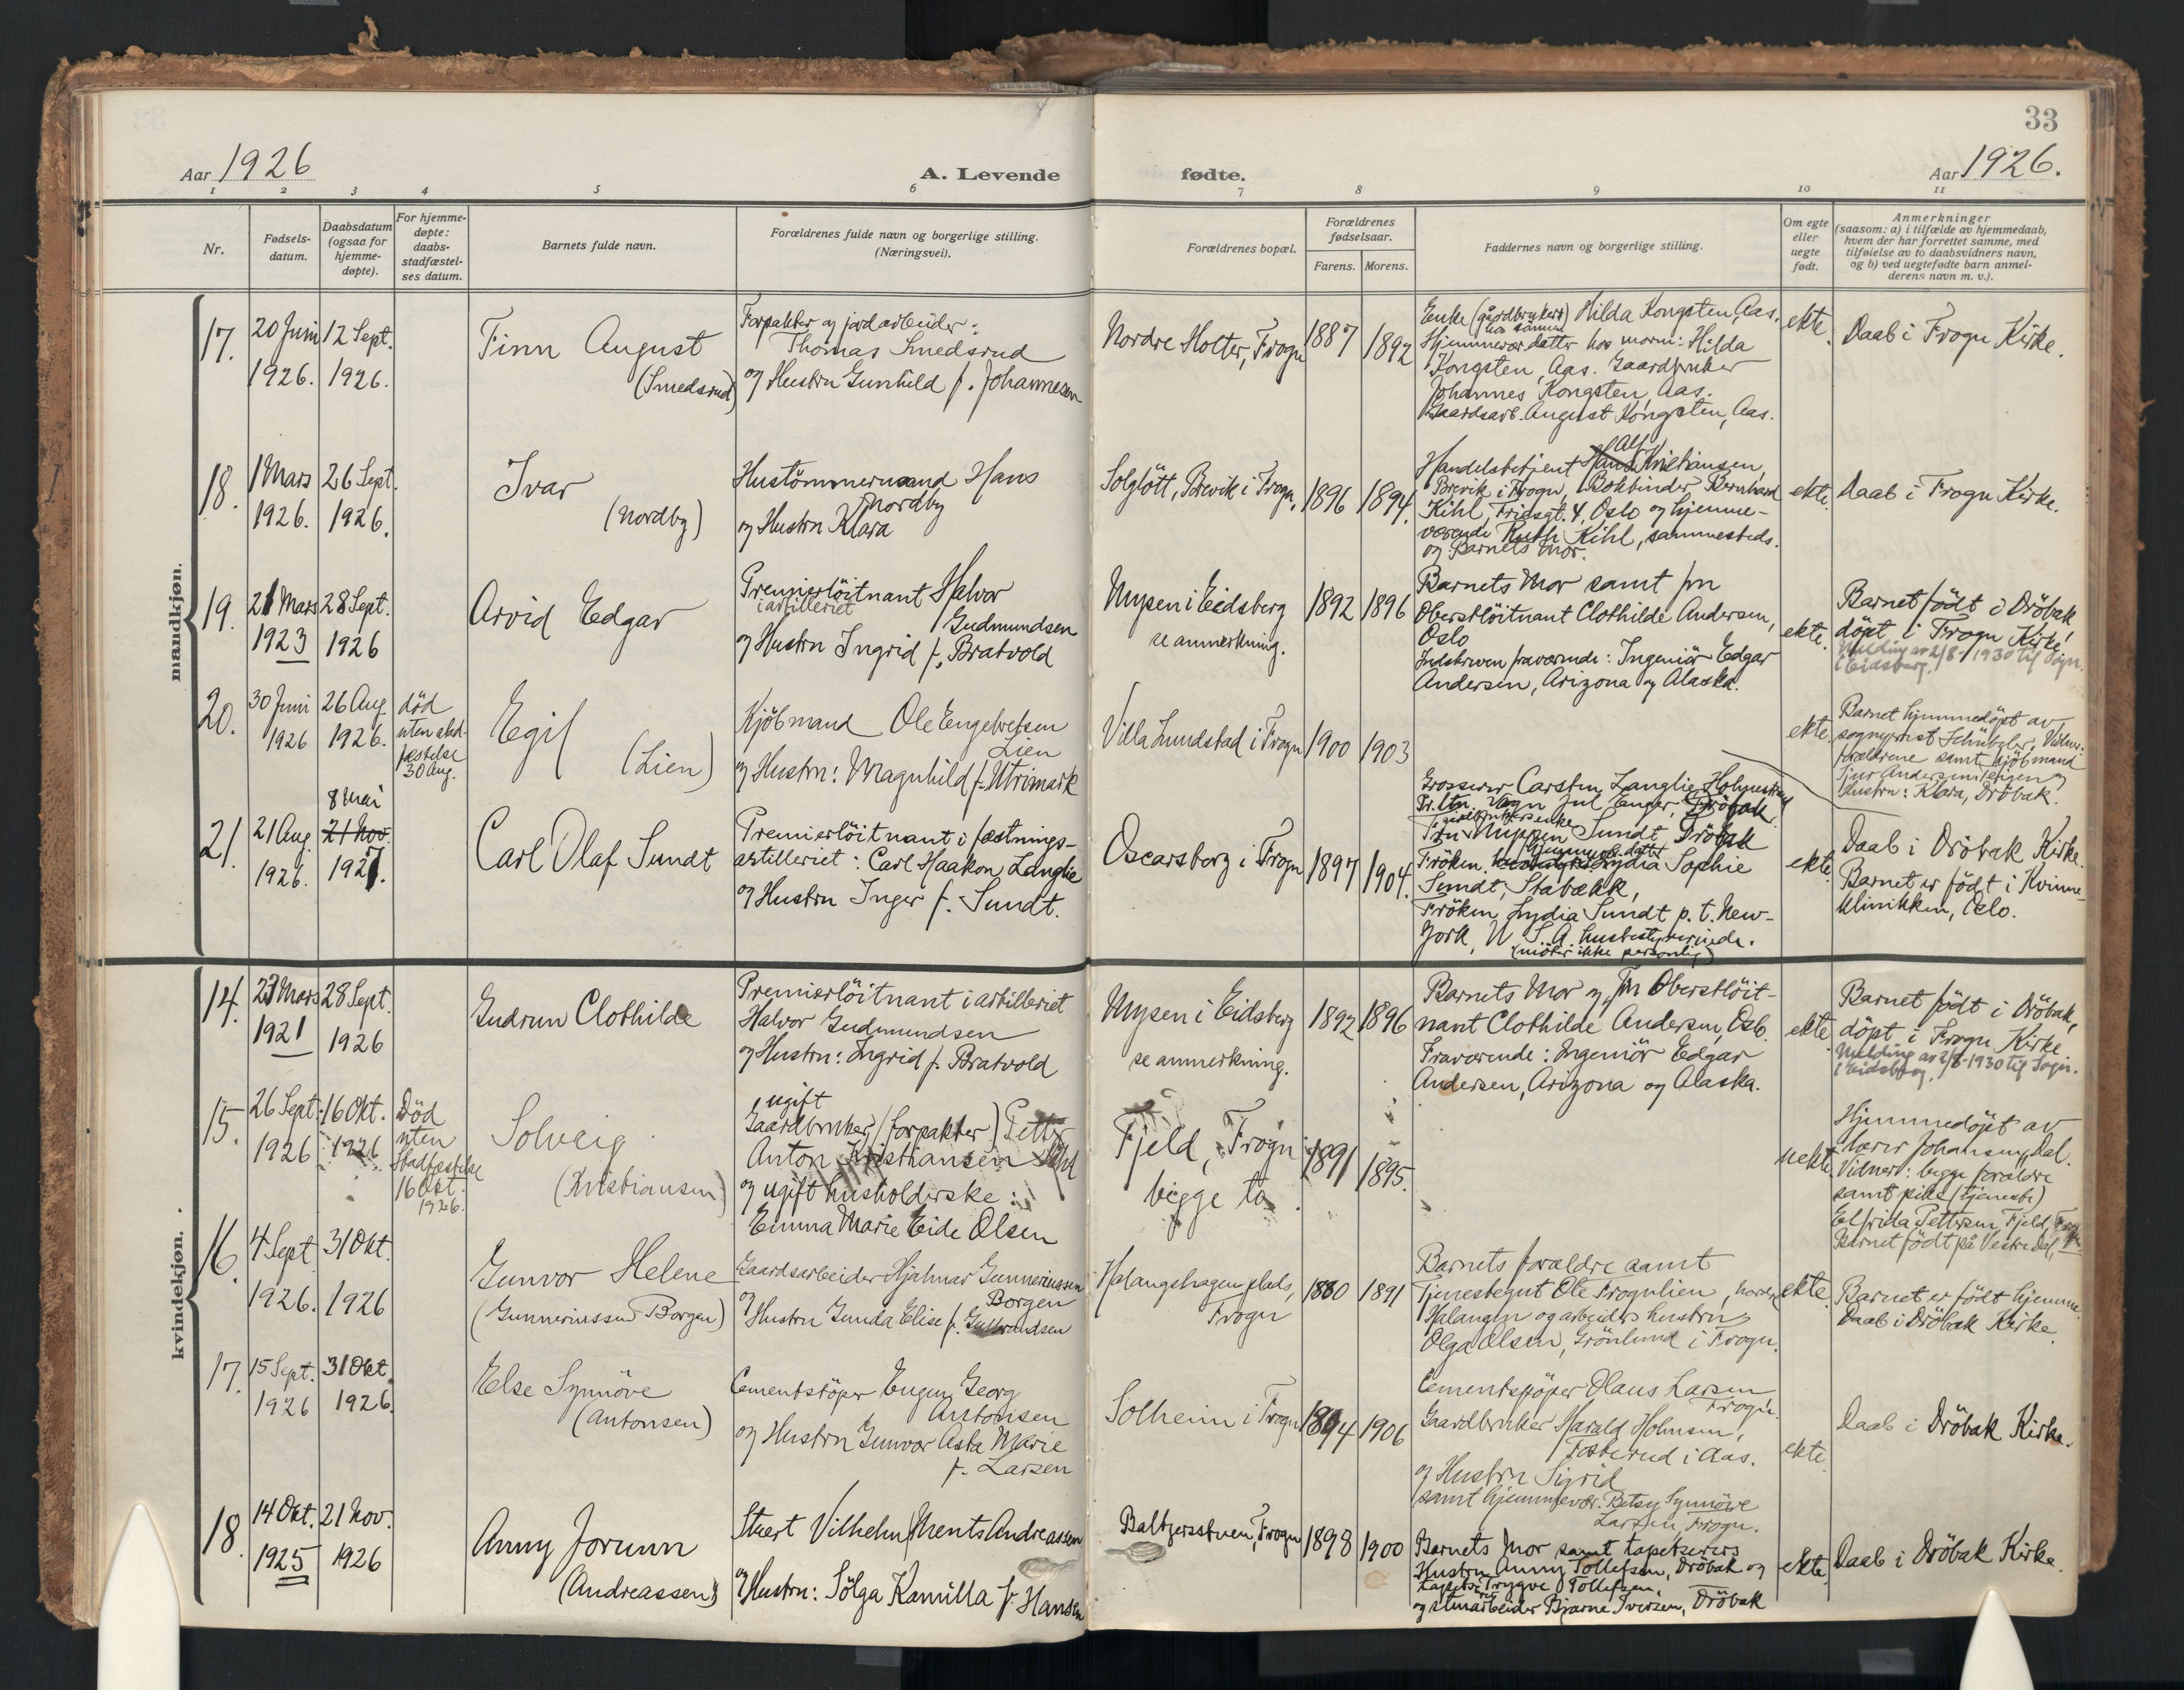 33
Aar 1926
A. Levende
fødte.
Aar 1926.
1 2 3 4 5 6 7 8 9 10 11
Nr.
Fødsels-
datum.
Daabsdatum
(ogsaa for
hjemme-
døpte).
For hjemme-
døpte:
daabs-
stadfæstel-
ses datum.
Barnets fulde navn.
Forældrenes fulde navn og borgerlige stilling.
(Næringsvei).
Forældrenes bopæl.
Forældrenes
fødselsaar.
Farens. Morens.
Faddernes navn og borgerlige stilling.
Om egte
eller
uegte
født.
Anmerkninger
(saasom: a) i tilfælde av hjemmedaab,
hvem der har forrettet samme, med
tilføielse av to daabsvidners navn,
og b) ved uegtefødte barn anmel-
derens navn m. v.).
mandkjøn.
17.
20 Juni
1926.
12 Sept.
1926.
Finn August
(Smedsrud)
Forpakter og jordarbeider:
Thomas Smedsrud
og Hustru Gunhild f. Johannesen
Nordre Holter, Frogn
1887
1892
Enke (gårdbrukers) Hilda Kongsten, Aas.
Hjemmevær datter hos moren: Hilda
Kongsten, Aas. Gaardbruker
Johannes Kongsten, Aas.
Gaardsarb. August Kongsten, Aas.
ekte.
Daab i Frogn Kirke.
18.
1 Mars
1926.
26 Sept.
1926.
Ivar
(Nordby)
Hustömmermand Hans
Nordby
og Hustru Klara
Solglött, Brevik i Frogn.
1896
1894.
Alf
Handelsbetjent Hans Kristiansen,
Brevik i Frogn, Bokbinder Bernhard
Kihl, Friesgt. 4, Oslo og hjemme-
værende Ruth Kihl, sammesteds.
og Barnets Mor.
ekte.
Daab i Frogn Kirke.
19.
21 Mars
1923
28 Sept.
1926
Arvid Edgar
Premierlöitnant Halvor
i artilleriet
Gudmundsen
og Hustru Ingrid f. Bratvold
Mysen i Eidsberg
se anmerkning.
1892
1896
Barnets Mor samt fru
Oberstlöitnant Clothilde Andersen,
Oslo
Indskreven fraværende: Ingeniör Edgar
Andersen, Arizona og Alaska.
ekte.
Barnet födt i Dröbak,
döpt i Frogn Kirke.
Melding av 2/8-1930 til Sogn.
i Eidsberg.
20.
30 Juni
1926
26 Aug.
1926.
død
uten stad-
fæstelse
30 Aug.
Egil
(Lien)
Kjöbmand Ole Engebretsen
Lien
og Hustru: Magnhild f. Utrimark
Villa Lundstad i Frogn
1900
1903
ekte.
Barnet hjemmedöpt av
sogneprest Schübeler. Vidner:
forældrene samt kjöbmand
Hustru: Klara, Dröbak.
21.
21 Aug.
1926.
8 Mai
21 Nov.
1927.
Carl Olaf Sundt
Premierlöitnant i fæstnings-
artilleriet: Carl Haakon Langlie
og Hustru Inger f. Sundt.
Oscarsborg i Frogn
1897
1904.
Grosserer Carsten Langlie, Holmestrand
Pr.ltn. Vagn Jul Enger, Dröbak
Sundt, Dröbak
hjemmev. datter
Fröken Lydia Sophie
Sundt, Stabækk,
Fröken Lydia Sundt p. t. New-
York, U. S. A. husbestyrerinde.
(möter ikke personlig)
ekte.
Daab i Dröbak Kirke.
Barnet er födt i Kvinne-
klinikken, Oslo.
kvindekjøn.
14.
23 Mars
1921
28 Sept.
1926
Gudrun Clothilde
Premierlöitnant i artilleriet
Halvor Gudmundsen
og Hustru: Ingrid f. Bratvold
Mysen i Eidsberg
se anmerkning.
1892
1896
Barnets Mor og fru Oberstlöit-
nant Clothilde Andersen, Oslo.
Fraværende: Ingeniör Edgar
Andersen, Arizona og Alaska.
ekte.
Barnet födt i Dröbak,
döpt i Frogn Kirke.
Melding av 2/8-1930 til Sogn.
i Eidsberg.
15.
26 Sept.
1926
16 Okt.
1926
Død
uten
Stadfæstelse
16 Okt.
1926.
Solveig
(Kristiansen)
ugift
Gaardbruker (forpakter) Petter
Anton Kristiansen
og ugift husholderske:
Emma Marie Eide Olsen
Fjeld, Frogn
begge to
1891
1895.
uekte.
Hjemmedöpt av
lærer Johansen, Dal.
Vitner: begge forældre
samt pike (tjeneste)
Elfrida Pettersen, Fjeld, Frogn
Barnet födt på Vestre Dal,
16.
4 Sept.
1926.
31 Okt.
1926
Gunvor Helene
(Gunneriussen Borgen)
Gaardsarbeider Hjalmar Gunneriussen
Borgen
og Hustru Gunda Elise f. Gulbrandsen
Halangshagen plads,
Frogn
1880
1891
Barnets forældre samt
Tjenestegut Ole Frogulien, nordre
Halangen og arbeiders hustru
Olga Olsen, Grönlund i Frogn.
ekte.
Barnet er födt hjemme
Daab i Dröbak Kirke.
17.
15 Sept.
1926
31 Okt.
1926.
Else Synnöve
(Antonsen)
Cementstöper Eugen Georg
Antonsen
og Hustru Gunvor Asta Marie
f. Larsen
Solheim i Frogn
1894
1906
Cementstöper Olaus Larsen
Frogn.
Gaardbruker Harald Holmsen,
Fosterud i Aas.
og Hustru Sigrid
samt hjemmevær. Betsy Synnöve
Larsen, Frogn.
ekte.
Daab i Dröbak Kirke.
18.
14 Okt.
1925
21 Nov.
1926
Anny Jorunn
(Andreassen)
Stuert Vilhelm Ments Andreassen
og Hustru: Sölga Kamilla f. Hansen
Baltzersstuen, Frogn
1898
1900
Barnets Mor samt tapetserers
Hustru Anny Tollefsen, Dröbak og
Tapetserer Trygve Tollefsen,
og stenarbeider Bjarne Iversen, Dröbak
ekte.
Daab i Dröbak Kirke.